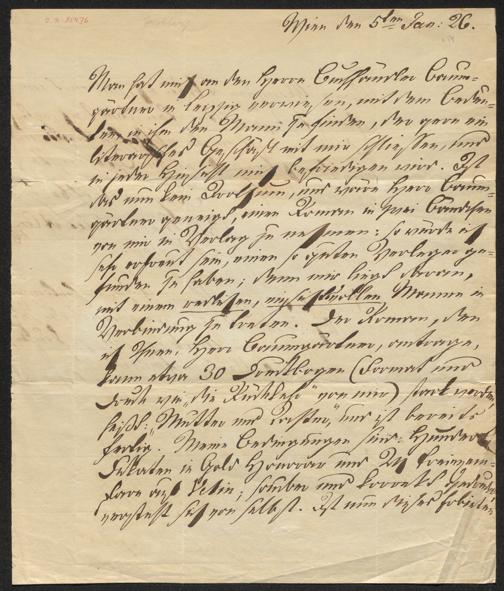 Wien den 5ten Jan: 26.
Man hat mich an den Herrn Buchhändler Baum-
gärtner in Leipzig verwiesen, mit dem Bedeu-
ten, in ihm den Mann zu finden, der gern ein
literarisches Geschäft mit mir schliessen, und
in jeder Hinsicht mich befriedigen wird. Ist
das nun kein Irrthum, und wäre Herr Baum-
gärtner geneigt, einen Roman in zwei Bändchen
von mir in Verlag zu nehmen: so würde ich
sehr erfreut sein, einen so guten Verleger ge-
funden zu haben; denn mir liegt daran,
mit einem Manne in
Verbindung zu treten. Der Roman, den
ich Ihnen, Herr Baumgärtner, antrage,
kann etwa 30 Druckbogen (Format und
Druck wie „die " von mir) stark werden
heißt: „Mutter und Tochter", und ist bereits
fertig. Meine Bedingungen sind: Hundert
Dukaten in Gold Honorar und 24 Freiexem-
plare auf Velin; saubrer und korrekter Druck
versteht sich von selbst. Ist nun dieses